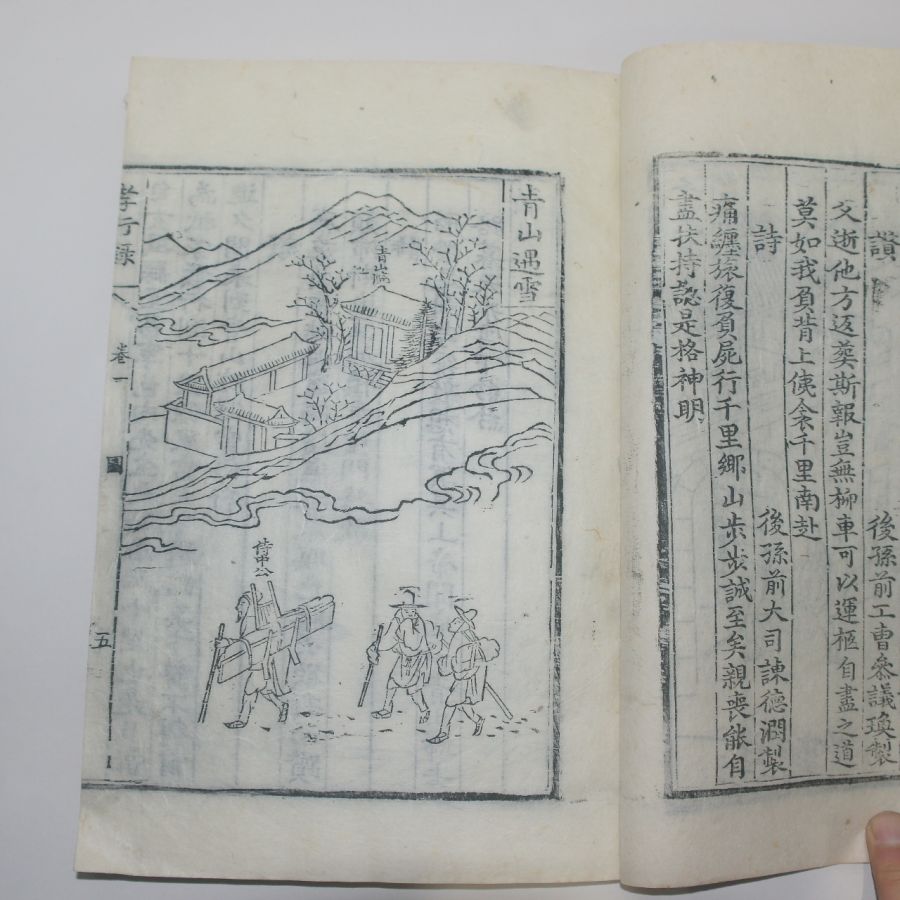 讃
後孫前工曹叅議瑍製
父逝他方返葬斯報豈無柳車可以運柩自盡之道
莫如我負背上侇衾千里南赴
詩
後孫前大司諫德潤製
痛纏旅復負屍行千里鄉山步步誠至矣親喪能自
盡扶持認是格神明
靑山遇雪
靑山
侍中公
孝行録
卷一
圖
五